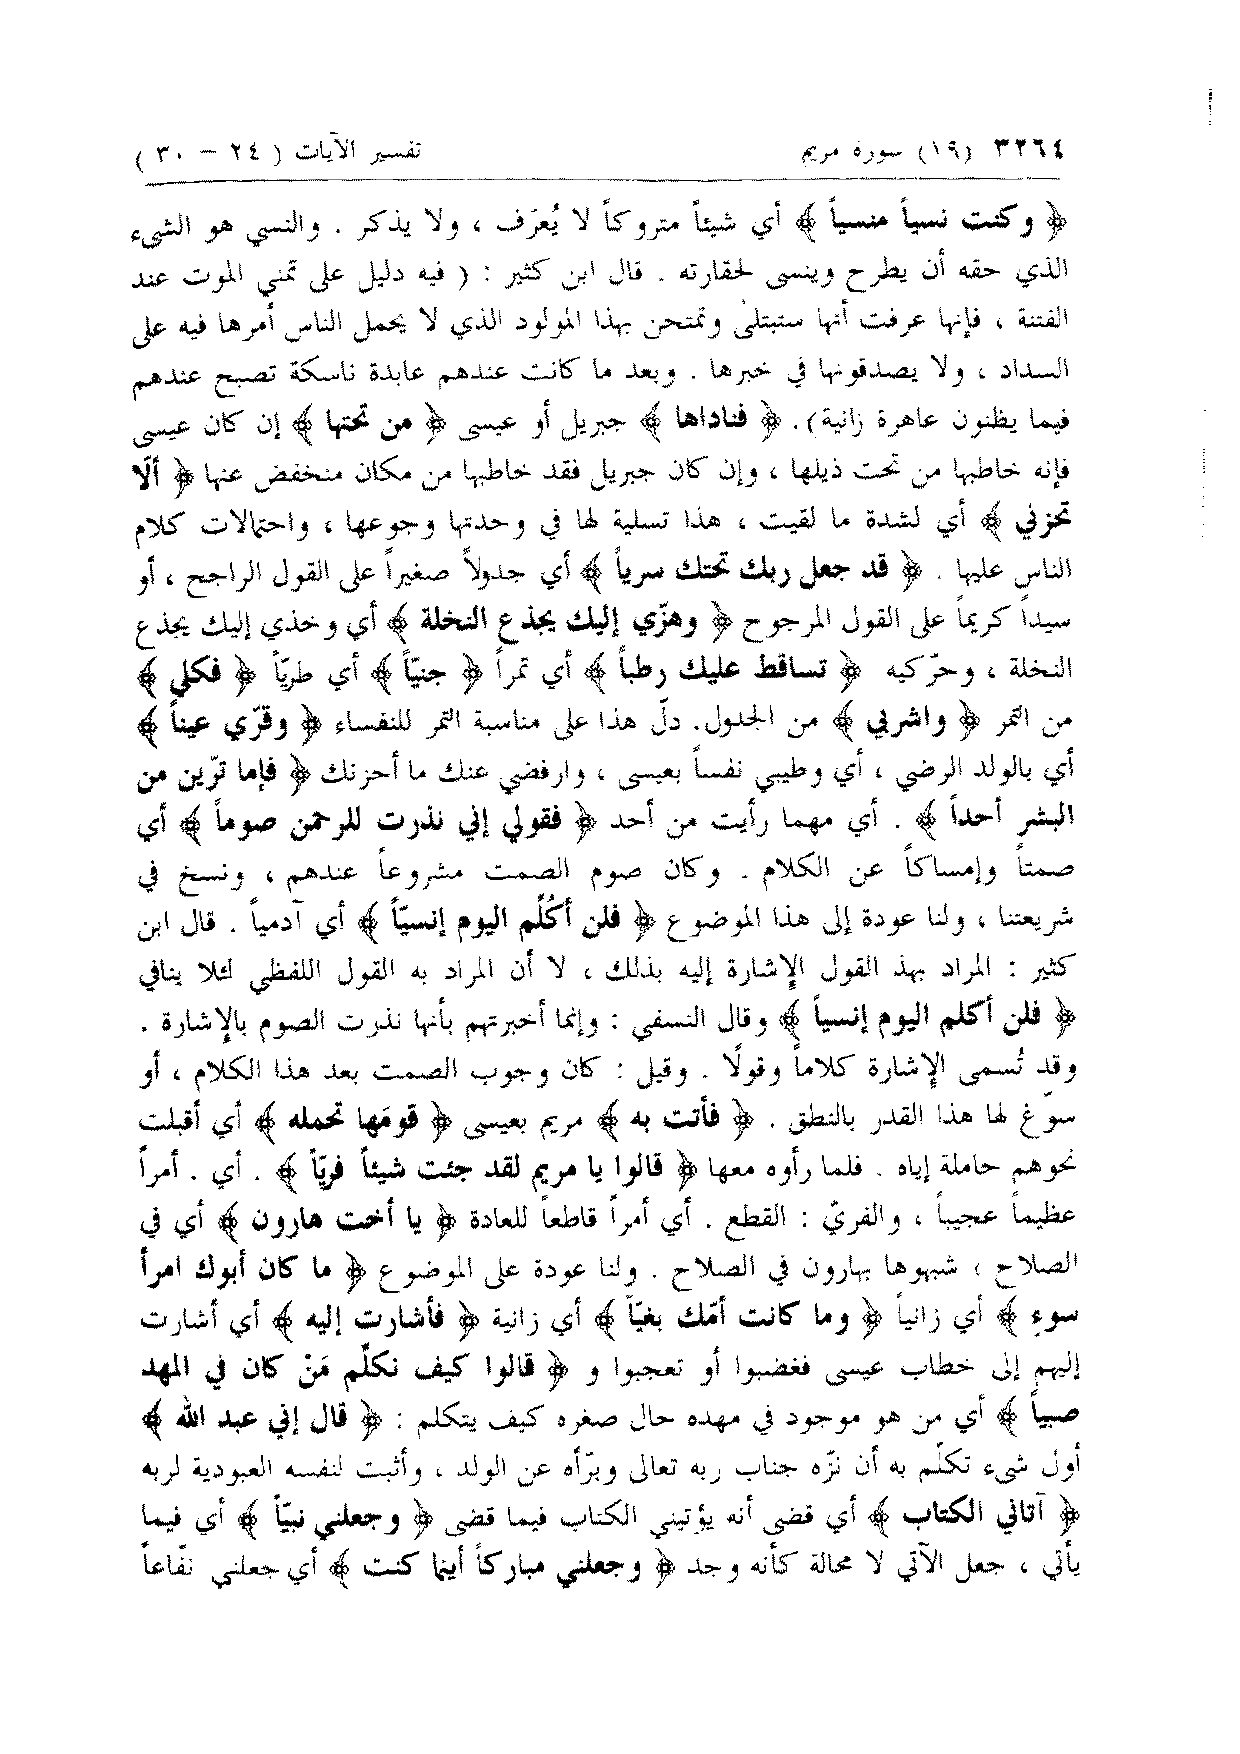 ٣٢٦٤ (١٩) سورة مريم تفسير الآيات ( ٢٤ – ٣٠ )
﴿ وكنت نسياً منسياً ﴾ أي شيئاً متروكاً لا يُعرَف ، ولا يذكر . والنسي هو الشيء
الذي حقه أن يطرح وينسى لحقارته . قال ابن كثير : ( فيه دليل على تمني الموت عند
الفتنة ، فإنها عرفت أنها ستبتلى وتمتحن بهذا المولود الذي لا يحمل الناس أمرها فيه على
السداد ، ولا يصدقونها في خبرها . وبعد ما كانت عندهم عابدة ناسكة تصبح عندهم
فيما يظنون عاهرة زانية). ﴿ فناداها ﴾ جبريل أو عيسى ﴿ من تحتها ﴾ إن كان عيسى
فإنه خاطبها من تحت ذيلها ، وإن كان جبريل فقد خاطبها من مكان منخفض عنها ﴿ ألّا
تحزني ﴾ أي لشدة ما لقيت ، هذا تسلية لها في وحدتها وجوعها ، واحتمالات كلام
الناس عليها . ﴿ قد جعل ربك تحتك سرياً ﴾ أي جدولاً صغيراً على القول الراجح ، أو
سيداً كريماً على القول المرجوح ﴿ وهزّي إليك بجذع النخلة ﴾ أي وخذي إليك بجذع
النخلة ، وحرّكيه ﴿ تساقط عليك رطباً ﴾ أي تمراً ﴿ جنيّاً ﴾ أي طريّاً ﴿ فكلي ﴾
من التمر ﴿ واشربي ﴾ من الجدول. دلّ هذا على مناسبة التمر للنفساء ﴿ وقرّي عيناً ﴾
أي بالولد الرضي ، أي وطيبي نفساً بعيسى ، وارفضي عنك ما أحزنك ﴿ فإما ترّين من
البشر أحداً ﴾ . أي مهما رأيت من أحد ﴿ فقولي إني نذرت للرحمن صوماً ﴾ أي
صمتاً وإمساكاً عن الكلام . وكان صوم الصمت مشروعاً عندهم ، ونسخ في
شريعتنا ، ولنا عودة إلى هذا الموضوع ﴿ فلن أُكلّم اليوم إنسيّاً ﴾ أي آدمياً . قال ابن
كثير : المراد بهذ القول الإشارة إليه بذلك ، لا أن المراد به القول اللفظي لئلا ينافي
﴿ فلن أكلم اليوم إنسياً ﴾ وقال النسفي : وإنما أخبرتهم بأنها نذرت الصوم بالإشارة .
وقد تُسمى الإشارة كلاماً وقولًا . وقيل : كان وجوب الصمت بعد هذا الكلام ، أو
سوّغ لها هذا القدر بالنطق . ﴿ فأتت به ﴾ مريم بعيسى ﴿ قومَها تحمله ﴾ أي أقبلت
نحوهم حاملة إياه . فلما رأوه معها ﴿ قالوا يا مريم لقد جئت شيئاً فريّاً ﴾ . أي . أمراً
عظيماً عجيباً ، والفريّ : القطع . أي أمراً قاطعاً للعادة ﴿ يا أخت هارون ﴾ أي في
الصلاح ، شبهوها بهارون في الصلاح . ولنا عودة على الموضوع ﴿ ما كان أبوك امرأ
سوءٍ ﴾ أي زانياً ﴿ وما كانت أمّك بغيّاً ﴾ أي زانية ﴿ فأشارت إليه ﴾ أي أشارت
إليهم إلى خطاب عيسى فغضبوا أو تعجبوا و ﴿ قالوا كيف نكلّم مَنْ كان في المهد
صبياً ﴾ أي من هو موجود في مهده حال صغره كيف يتكلم : ﴿ قال إني عبد الله ﴾
أول شيء تكلّم به أن نزّه جناب ربه تعالى وبرّأه عن الولد ، وأثبت لنفسه العبودية لربه
﴿ آتاني الكتاب ﴾ أي قضى أنه يؤتيني الكتاب فيما قضى ﴿ وجعلني نبيّاً ﴾ أي فيما
يأتي ، جعل الآتي لا محالة كأنه وجد ﴿ وجعلني مباركاً أينما كنت ﴾ أي جعلني نفّاعاً